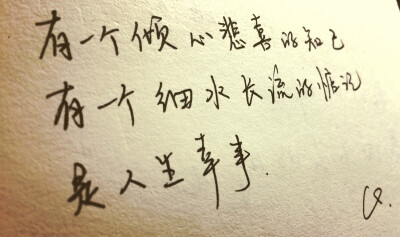 有一个倾心悲喜的知己
有一个细水长流的惦记
是人生幸事.